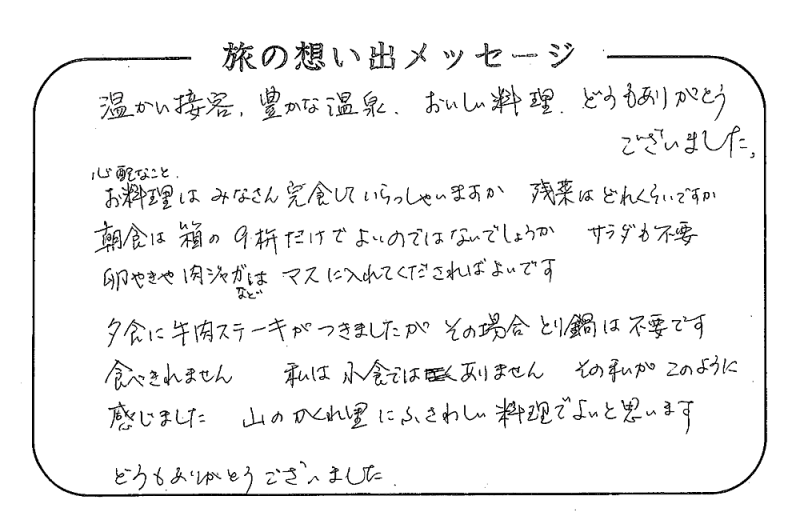 旅の想い出メッセージ
温かい接客、豊かな温泉、おいしい料理、どうもありがとう
ございました。
心配なこと、
お料理は みなさん完食していらっしゃいますか 残菜はどれくらいですか
朝食は 箱の 9枡だけでよいのではないでしょうか サラダも不要
卵やきや肉ジャガなどは マスに入れてくださればよいです
夕食に牛肉ステーキがつきましたが その場合とり鍋は不要です
食べきれません 私は小食ではありません その私がこのように
感じました 山のかくれ里にふさわしい料理でよいと思います
どうもありがとうございました